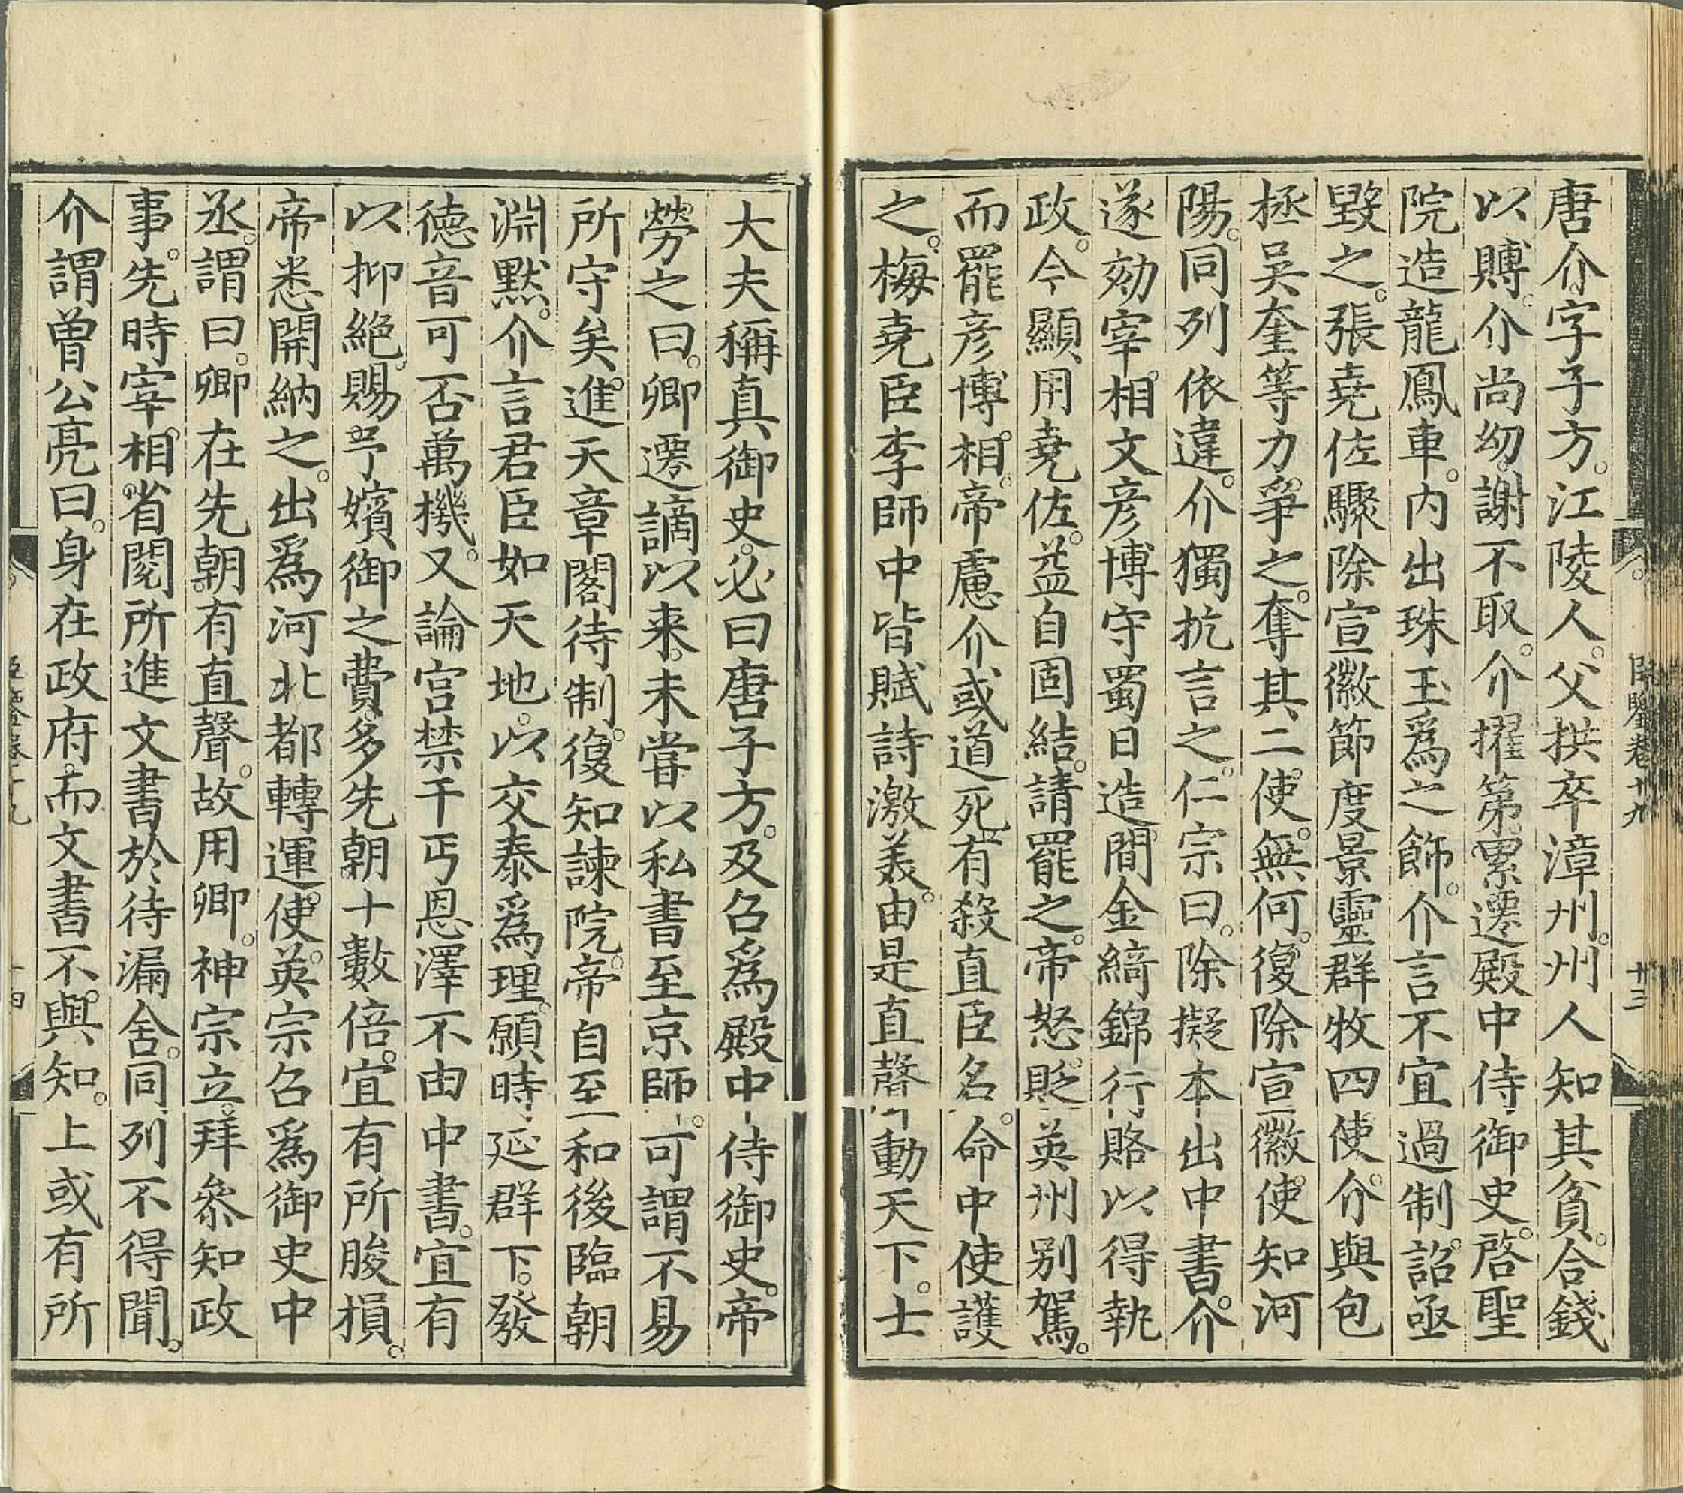 唐介字子方。江陵人。父拱卒漳州。州人知其貧。合錢
以賻。介尚幼。謝不取。介擢第。累遷殿中侍御史。啓聖
院造龍鳳車。内出珠玉爲之飾。介言不宜過制。詔亟
毀之。張堯佐驟除宣徽節度景靈群牧四使。介與包
拯吴奎等力爭之。奪其二使。無何。復除宣徽使知河
陽。同列依違。介獨抗言之。仁宗曰。除擬本出中書。介
遂劾宰相文彦博守蜀日造間金綺錦行賂以得執
政。今顯用堯佐。益自固結。請罷之。帝怒。貶英州别駕。
而罷彦博相。帝慮介或道死。有殺直臣名。命中使護
之。梅堯臣李師中皆賦詩激美。由是直聲動天下。士
臣鑒卷十九
廿三
大夫稱真御史。必曰唐子方。及召爲殿中侍御史。帝
勞之曰。卿遷謫以来。未嘗以私書至京師。可謂不易
所守矣。進天章閣待制。復知諫院。帝自至和後臨朝
淵默。介言君臣如天地。以交泰爲理。願時延群下。發
德音可否萬機。又論宫禁干丐恩澤不由中書。宜有
以抑絶。賜予嬪御之費。多先朝十數倍。宜有所朘損。
帝悉開納之。出爲河北都轉運使。英宗召爲御史中
丞。謂曰。卿在先朝。有直聲。故用卿。神宗立。拜叅知政
事。先時宰相。省閱所進文書於待漏舍。同列不得聞。
介謂曾公亮曰。身在政府。而文書不與知。上或有所